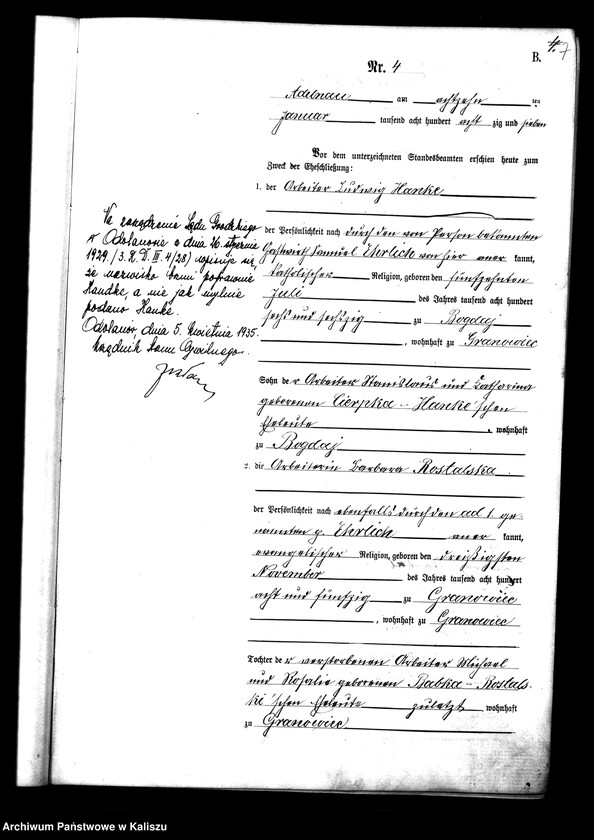 4. 7
B.
Nr. 4
Adelnau am achtzehn ten
Januar tausend acht hundert acht zig und sieben
Vor dem unterzeichneten Standesbeamten erschien heute zum
Zweck der Eheschließung:
1. der Arbeiter Ludwig Hanke
der Persönlichkeit nach durch den von Person bekannten
Gastwirth Samuel Ehrlich von hier aner kannt,
katholischer Religion, geboren den fünfzehnten
Juli des Jahres tausend acht hundert
sechs und sechszig zu Bogdaj
, wohnhaft zu Granowiec
Sohn de r Arbeiter Stanislaus und Katharina
geborenen Cierpka - Hanke'schen
Eheleute, wohnhaft
zu Bogdaj
2. die Arbeiterin Barbara Rostalska
der Persönlichkeit nach ebenfalls durch den ad 1. ge-
nannten p. Ehrlich aner kannt,
evangelischer Religion, geboren den dreißigsten
November des Jahres tausend acht hundert
acht und fünfzig zu Granowiec
, wohnhaft zu Granowiec
Tochter de r verstorbenen Arbeiter Michael
und Rosalie geborenen Babka - Rostals-
ki'schen Eheleute zuletzt wohnhaft
zu Granowiec
Na zarządzenie Sądu Grodzkiego
w Odolanowie z dnia 26. stycznia
1929 /3. K. D. III. 4/28/ wpisuje się,
że nazwisko brzmi poprawnie
Handke, a nie jak mylnie
podano Hanke.
Odolanów, dnia 5. kwietnia 1935.
Urzędnik Stanu Cywilnego.
Archiwum Państwowe w Kaliszu